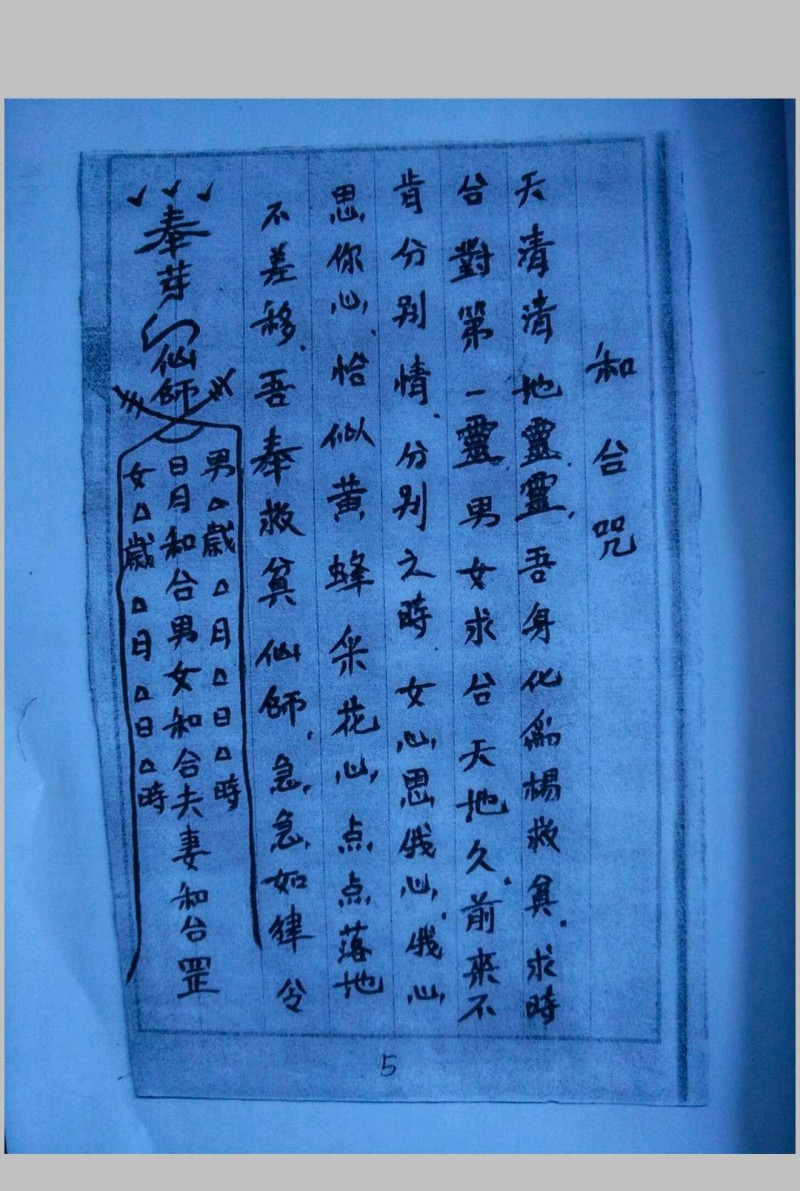 和合咒
天清清地靈靈吾身化為楊救貧求時
合對第一靈男女求合天地久前來不
肯分别情分别之時女心思俄心俄心
思你心恰似黄蜂采花心点点落地
不差移吾奉救貧仙師急急如律令
奉芽仙師
男△歲△月△日△時
日月和合男女和合夫妻和合罡
女△歲△月△日△時
5